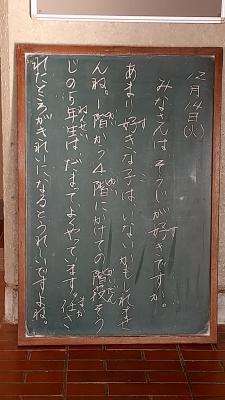 12月14日(火)
みなさんはそうじが好きですか。
あまり好きな子はいないかもしれませ
んね。1階から4階にかけての階段そう
じの5年生はだまってよくやっています。任さ
れたところがきれいになるとうれしいですよね。